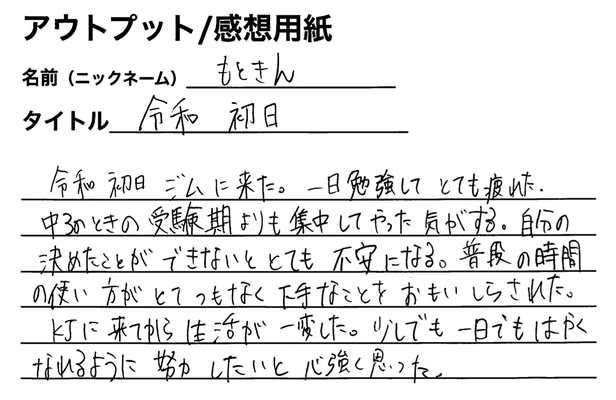 アウトプット/感想用紙
名前（ニックネーム） もときん
タイトル 令和 初日
令和 初日 ジムに来た。一日勉強して とても疲れた.
中3のときの 受験期よりも 集中してやった 気がする。自分の
決めたことが できないと とても 不安になる。普段の時間
の使い方が とてつもなく 下手なことを おもいしらされた。
KJに来てから 生活が 一変した。少しでも 一日でも はやく
なれるように 努力 したいと 心強く思った。